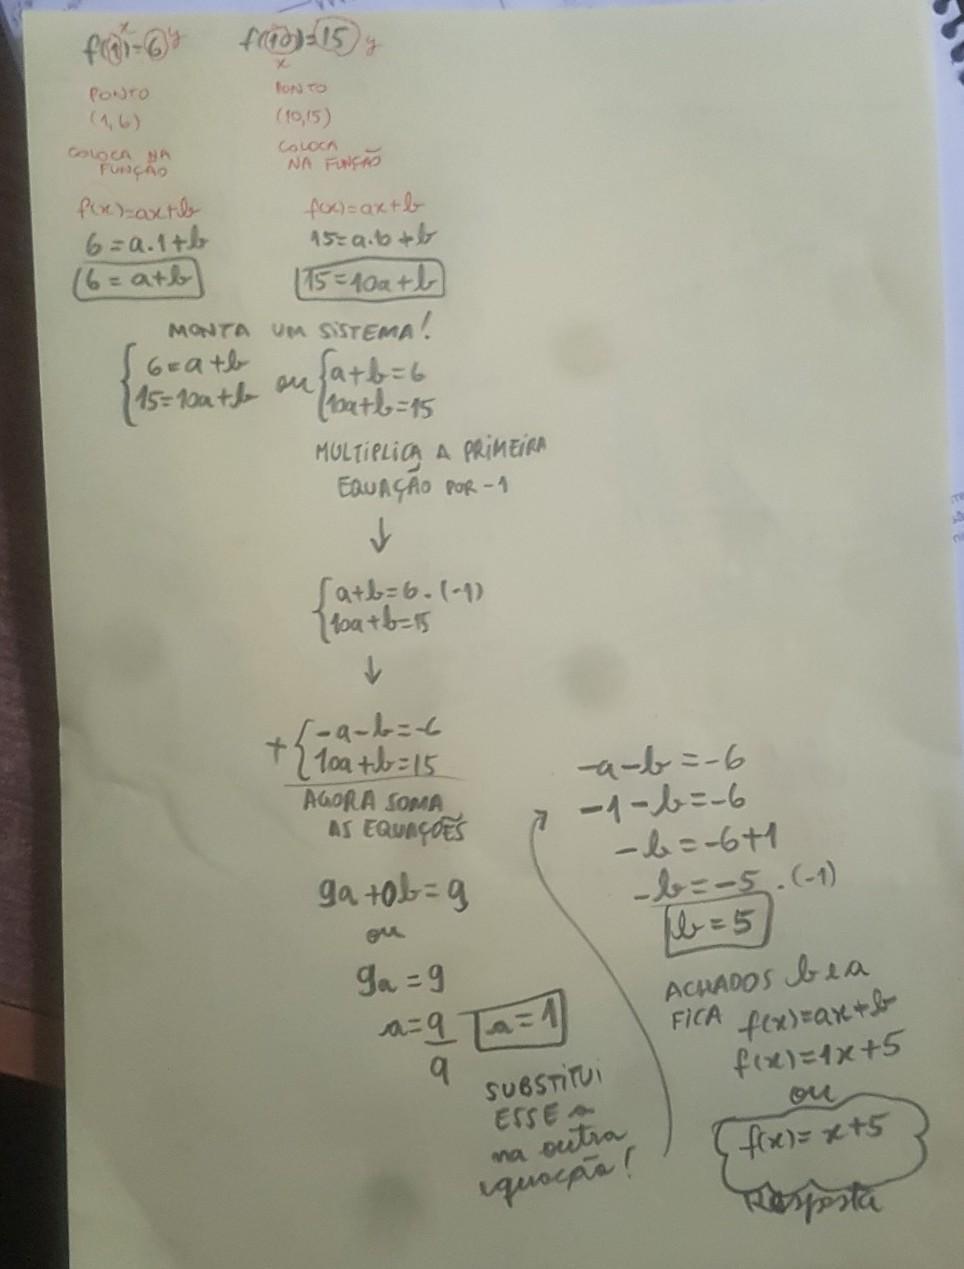 x
f(1)=6 y
PONTO
(1,6)
COLOCA NA
FUNÇÃO
f(x)=ax+b
6=a.1+b
6=a+b
f(10)=15 y
x
PONTO
(10,15)
COLOCA
NA FUNÇÃO
f(x)=ax+b
15=a.10+b
15=10a+b
MONTA UM SISTEMA!
{6=a+b ou {a+b=6
{15=10a+b {10a+b=15
MULTIPLICA A PRIMEIRA
EQUAÇÃO POR -1
↓
{a+b=6.(-1)
{10a+b=15
↓
+{-a-b=-6
{10a+b=15
AGORA SOMA
AS EQUAÇÕES
9a+0b=9
ou
9a=9
a=9/9 a=1
SUBSTITUI
ESSE a
na outra
equação!
-a-b=-6
-1-b=-6
-b=-6+1
-b=-5.(-1)
b=5
ACHADOS b e a
FICA f(x)=ax+b
f(x)=1x+5
ou
f(x)=x+5
Resposta